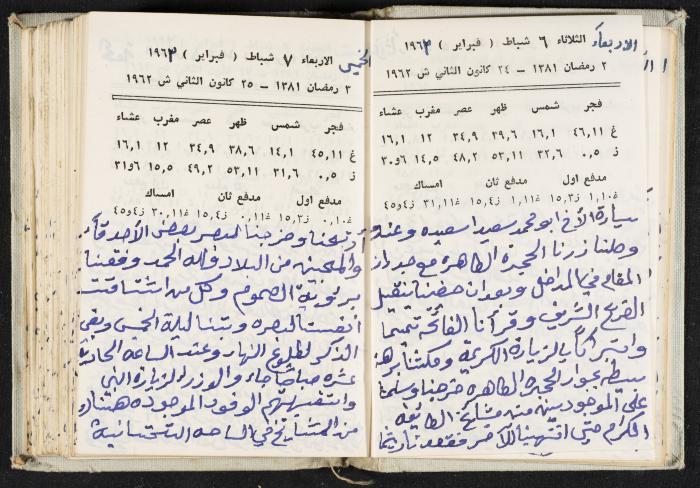 الاربعاء الثلاثاء ٦ شباط ( فبراير ) ١٩٦٣
٢ رمضان ١٣٨١ – ٢٤ كانون الثاني ش ١٩٦٢
فجر شمس ظهر عصر مغرب عشاء
غ ٤٦,١١ ١٦,١ ٣٩,٦ ٣٤,٩ ١٢ ١٦,١
ز ٠,٥ ٣٢,٦ ٥٣,١١ ٤٨,٢ ١٤,٥ ٣٠و٦
مدفع اول مدفع ثان امساك
غ١٠,١ ز١٥,٣ غ١١,١ ز١٥,٤ غ٣١,١١ ز٤٥و٤
سيارة الأخ ابو محمد سعيد اسعيده وعند
وصلنا زرنا الحجرة الطاهره مع
المقام في المداخل وبعد ان حضينا بتقبيل
الضريح الشريف وقرأنا الفاتحة تتميما
وتبركاً بالزيارة الكريمة ومكثنا برهة
بسيطه بجوار الحجره الطاهره خرجنا وسلمنا
على الموجودين من مشايخ الطائفه
الكرام حتى انتهينا للآخر فقعدنا ريثما
الخميس الاربعاء ٧ شباط ( فبراير ) ١٩٦٣
٣ رمضان ١٣٨١ – ٢٥ كانون الثاني ش ١٩٦٢
فجر شمس ظهر عصر مغرب عشاء
غ ٤٥,١١ ١٤,١ ٣٨,٦ ٣٤,٩ ١٢ ١٦,١
ز ٠,٥ ٣١,٦ ٥٣,١١ ٤٩,٢ ١٥,٥ ٣١و٦
مدفع اول مدفع ثان امساك
غ١٠,٠ ز١٥,٣ غ١١,٠ ز١٥,٤ غ٣٠,١١ ز٤٥و٤
ارتحنا وخرجنا لنبصر بعض الأصدقاء
والمحبين من البلاد ولله الحمد وفقنا
برؤية العموم وكل من اشتاقت
أنفسنا لبصره وبتنا ليلة الخميس وبقي
الذكر لطلوع النهار وعند الساعه الحادية
عشره صباحا جاء والوزراء لزيارة النبي
واستقبلتهم الوفود الموجوده هناك
من المشايخ في الساحه التحتانية